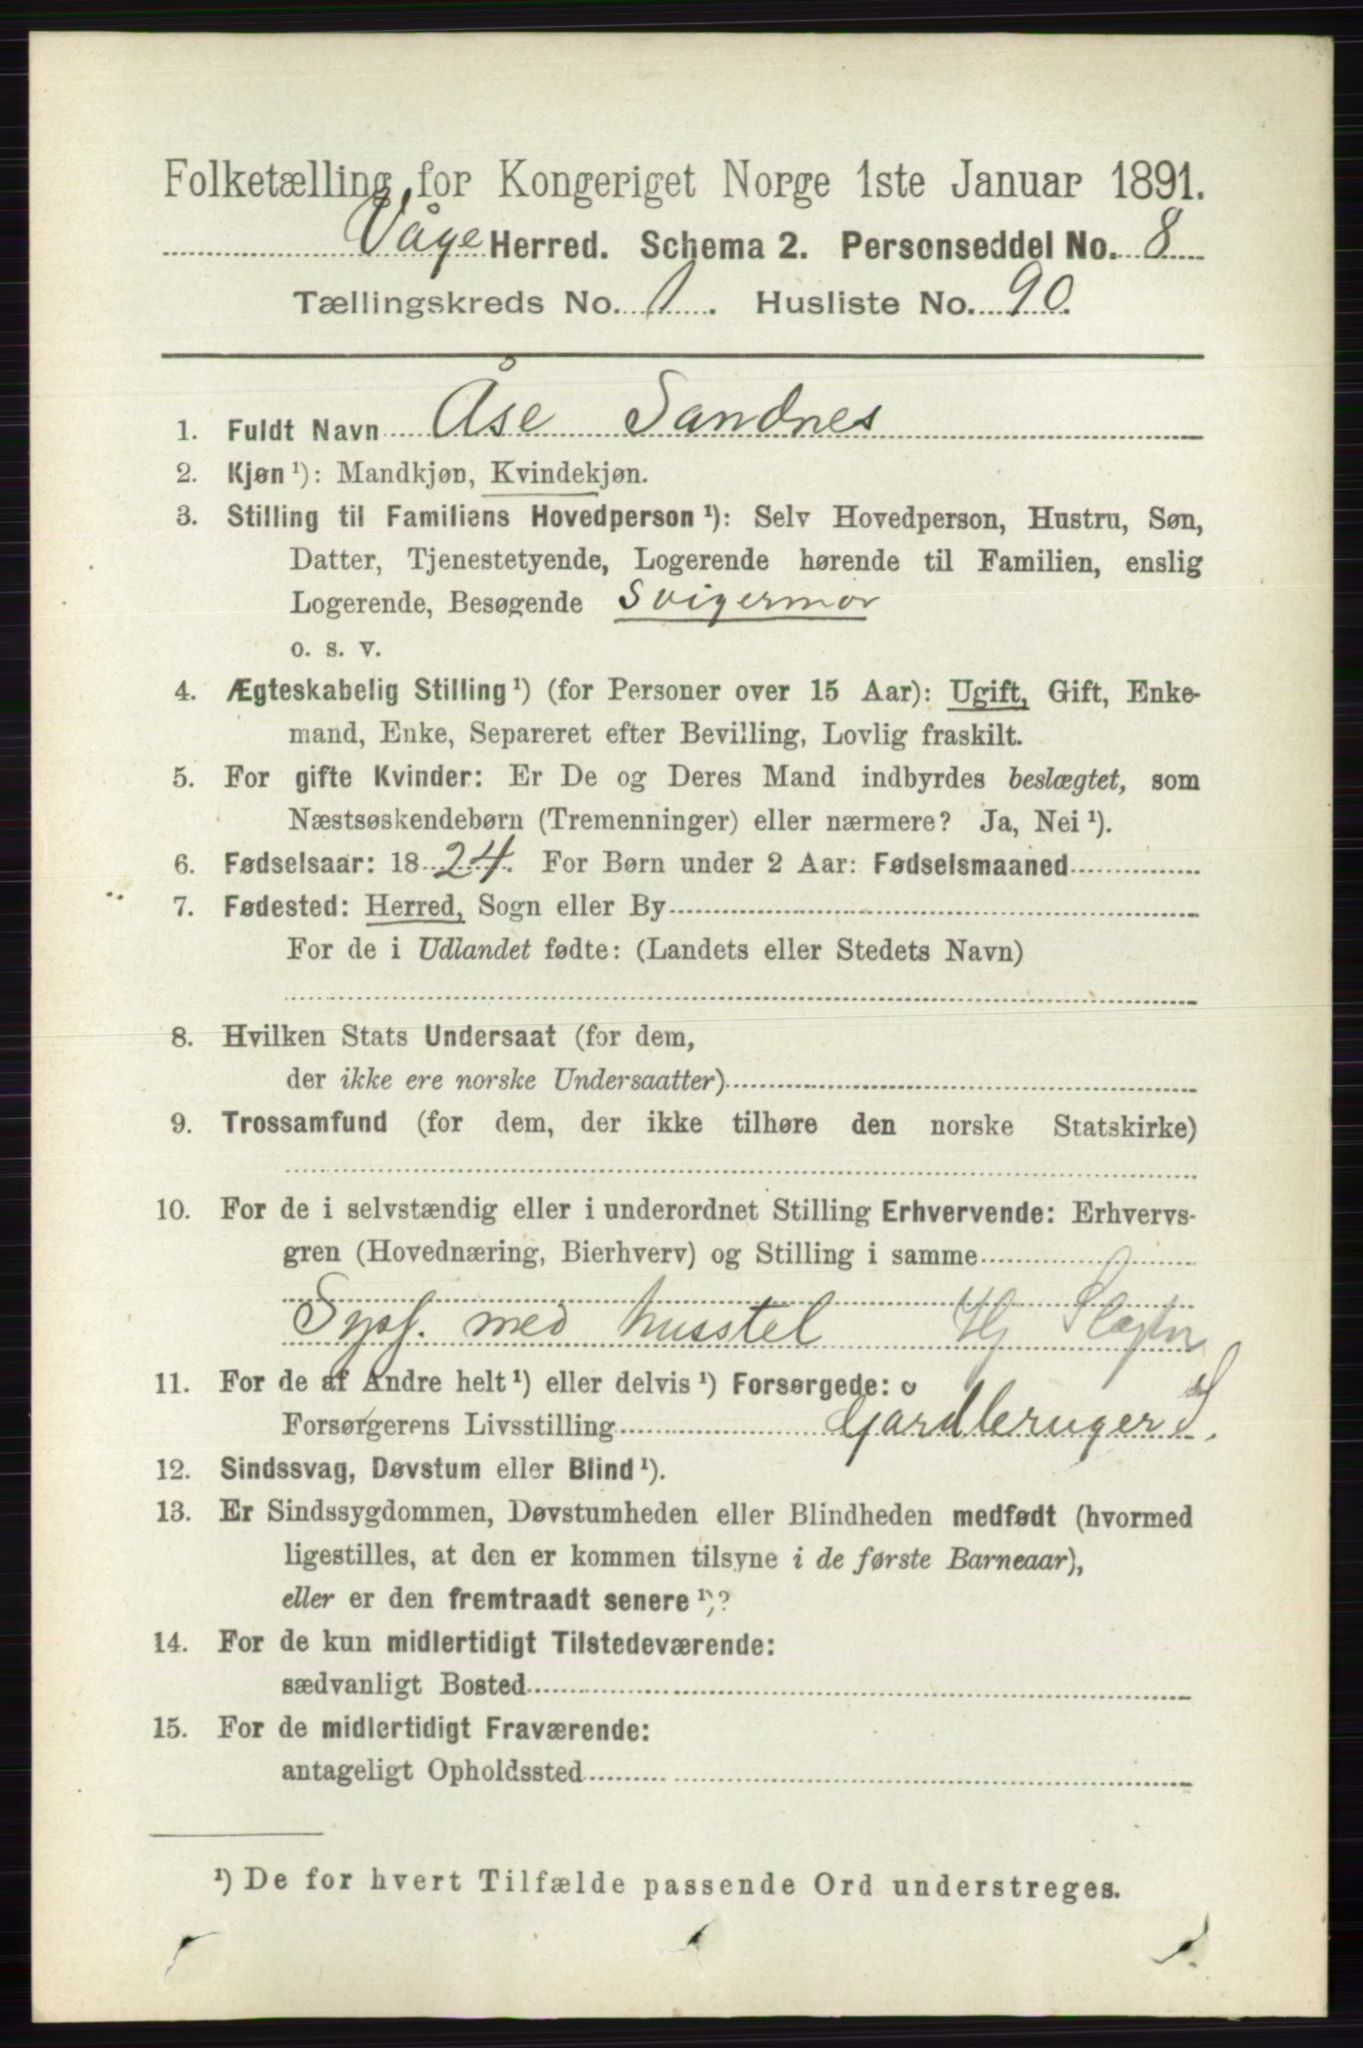 Folketælling for Kongeriget Norge 1ste Januar 1891.
Våge Herred. Schema 2. Personseddel No. 8
Tællingskreds No. 1. Husliste No. 90.
1. Fuldt Navn Åse Sandnes
2. Kjøn ¹): Mandkjøn, Kvindekjøn.
3. Stilling til Familiens Hovedperson ¹): Selv Hovedperson, Hustru, Søn,
Datter, Tjenestetyende, Logerende hørende til Familien, enslig
Logerende, Besøgende Svigermor
o. s. v.
4. Ægteskabelig Stilling ¹) (for Personer over 15 Aar): Ugift, Gift, Enke-
mand, Enke, Separeret efter Bevilling, Lovlig fraskilt.
5. For gifte Kvinder: Er De og Deres Mand indbyrdes beslægtet, som
Næstsøskendebørn (Tremenninger) eller nærmere? Ja, Nei ¹).
6. Fødselsaar: 1824. For Børn under 2 Aar: Fødselsmaaned
7. Fødested: Herred, Sogn eller By
For de i Udlandet fødte: (Landets eller Stedets Navn)
8. Hvilken Stats Undersaat (for dem,
der ikke ere norske Undersaatter)
9. Trossamfund (for dem, der ikke tilhøre den norske Statskirke)
10. For de i selvstændig eller i underordnet Stilling Erhvervende: Erhvervs-
gren (Hovednæring, Bierhverv) og Stilling i samme
Syss. med husstel Hj
11. For de af Andre helt ¹) eller delvis ¹) Forsørgede:
Forsørgerens Livsstilling Gardbruger S.
12. Sindssvag, Døvstum eller Blind ¹).
13. Er Sindssygdommen, Døvstumheden eller Blindheden medfødt (hvormed
ligestilles, at den er kommen tilsyne i de første Barneaar),
eller er den fremtraadt senere ¹)?
14. For de kun midlertidigt Tilstedeværende:
sædvanligt Bosted
15. For de midlertidigt Fraværende:
antageligt Opholdssted
¹) De for hvert Tilfælde passende Ord understreges.